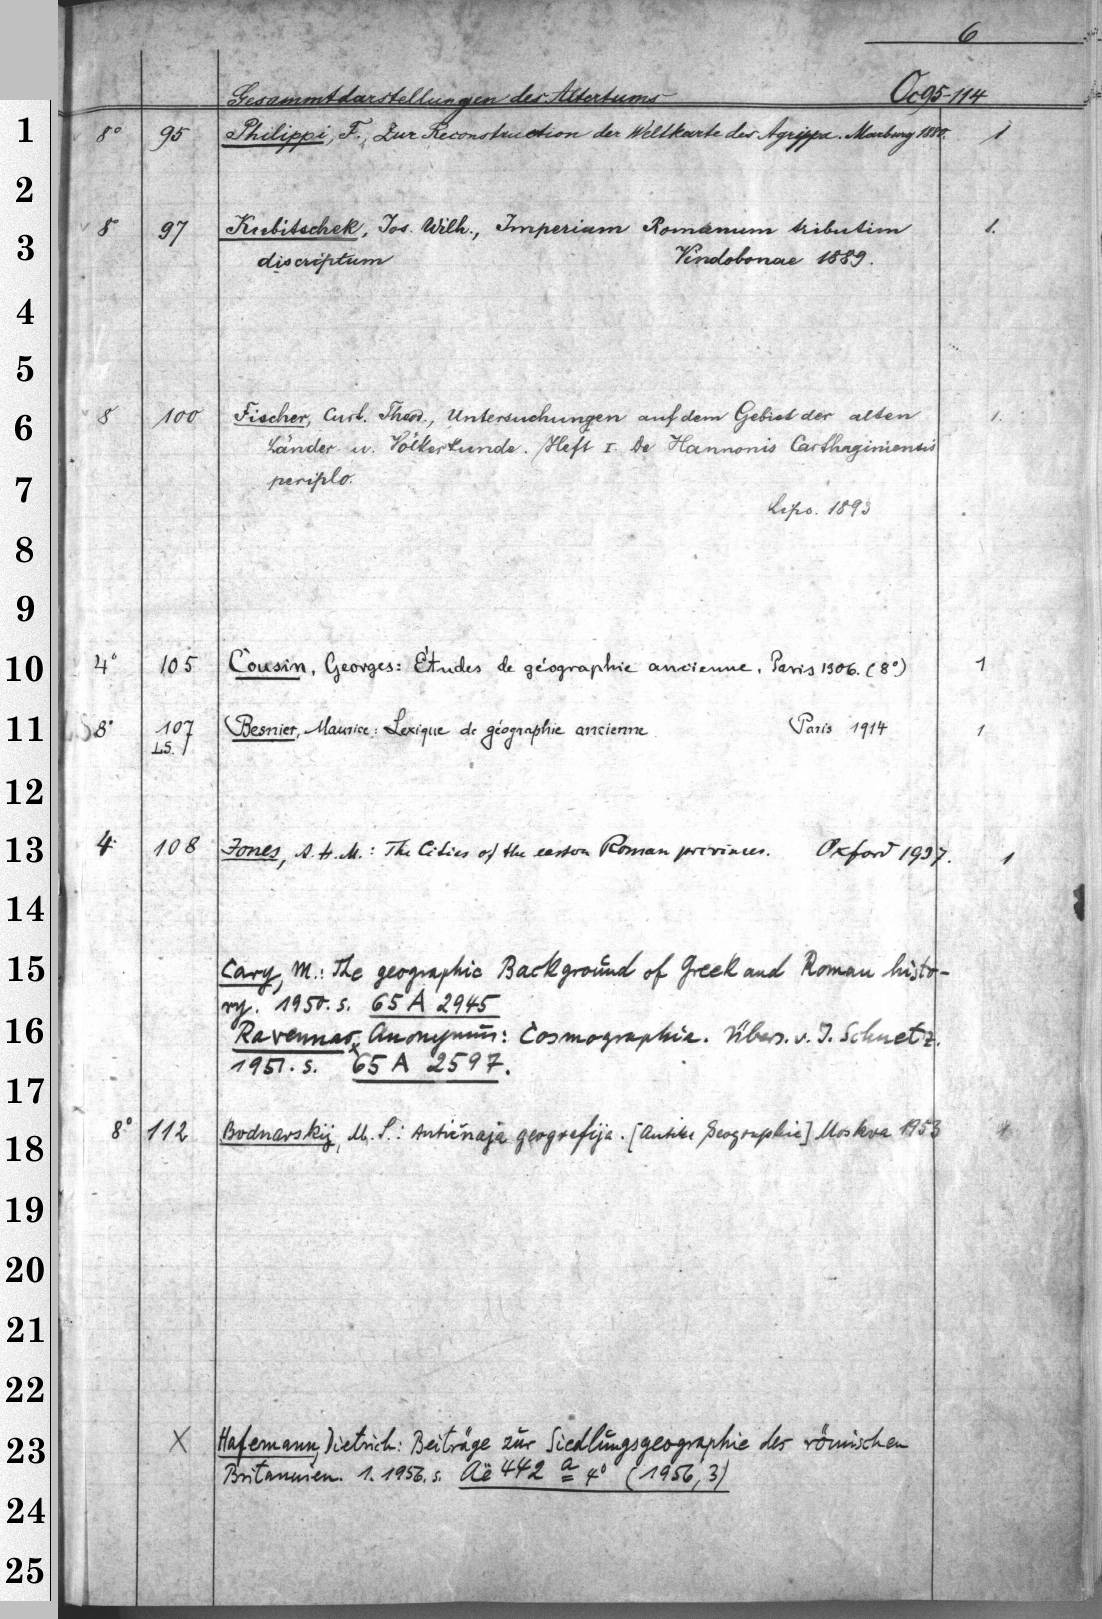 6
Gesammtdarstellungen des Altertums Oc 95-114
1 8° 95 Philippi, F., Zur Reconstruction der Weltkarte des Agrippa. Marburg 1880. 1
2
3 8° 97 Kubitschek, Jos. Wilh., Imperium Romanum tributim 1.
discriptum Vindobonae 1889.
4
5
6 8 100 Fischer, Curt. Theod., Untersuchungen auf dem Gebiet der alten 1.
Länder u. Völkerkunde. Heft I. De Hannonis Carthaginiensis
7 periplo.
Lips. 1893
8
9
10 4° 105 Cousin, Georges: Études de géographie ancienne. Paris 1906. (8°) 1
11 LS 8° 107 Besnier, Maurice: Lexique de géographie ancienne Paris 1914 1
LS.
12
13 4° 108 Jones, A. H. M.: The Cities of the eastern Roman provinces. Oxford 1937. 1
14
15 Cary, M.: The geographic Background of Greek and Roman histo-
ry. 1950. s. 65 A 2945
16 Ravennas, Anonymus: Cosmographia. Übers. v. J. Schnetz.
1951. s. 65 A 2597.
17
18 8° 112 Bodnarskij, M. S.: Antičnaja geografija. [Antike Geographie] Moskva 1953 1
19
20
21
22
23 X Hafemann, Dietrich: Beiträge zur Siedlungsgeographie des römischen
Britannien. 1. 1956. s. Aë 442 a 4° (1956, 3)
24
25